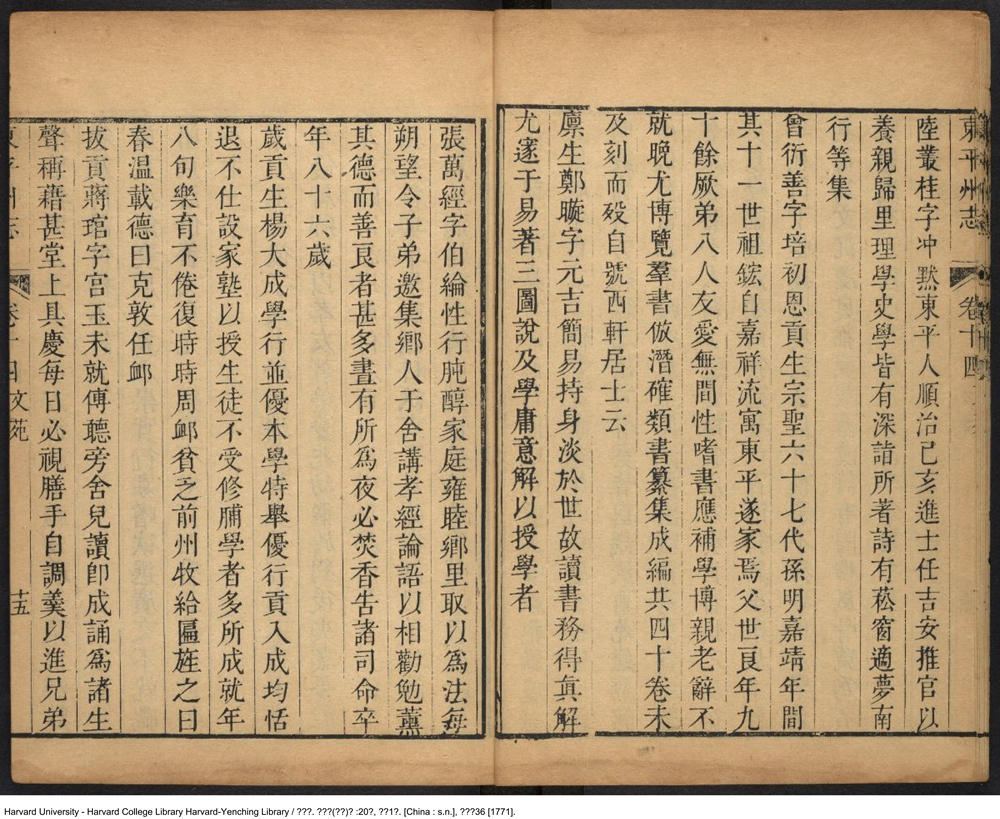 東平州志
卷十四
陸叢桂字冲黙東平人順治己亥進士任吉安推官以
養親歸里理學史學皆有深詣所著詩有菘窗適夢南
行等集
曾衍善字培初恩貢生宗聖六十七代孫明嘉靖年間
其十一世祖鋐自嘉祥流寓東平遂家焉父世良年九
十餘厥弟八人友愛無間性嗜書應補學博親老辭不
就晚尤博覽羣書倣潛確類書纂集成編共四十卷未
及刻而歿自號西軒居士云
廪生鄭璇字元吉簡易持身淡於世故讀書務得眞解
尤邃于易著三圖說及學庸意解以授學者
張萬經字伯綸性行肫醇家庭雍睦鄉里取以爲法每
朔望令子弟邀集鄉人于舍講孝經論語以相勸勉薰
其德而善良者甚多晝有所爲夜必焚香告諸司命卒
年八十六歲
歲貢生楊大成學行並優本學特舉優行貢入成均恬
退不仕設家塾以授生徒不受修脯學者多所成就年
八旬樂育不倦復時時周卹貧乏前州牧給匾旌之曰
春温載德曰克敦任卹
拔貢蔣琯字宫玉未就傅聽旁舍兒讀卽成誦爲諸生
聲稱藉甚堂上具慶每日必視膳手自調羹以進兄弟
東平州志
卷十四
文苑
十五
Harvard University - Harvard College Library Harvard-Yenching Library / ???. ???(??)? :20?, ??1?. [China : s.n.], ???36 [1771].